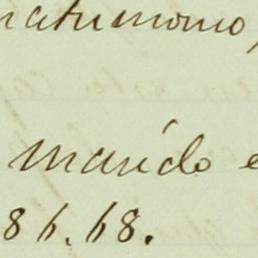 matrimonio,
marido e
86.68.